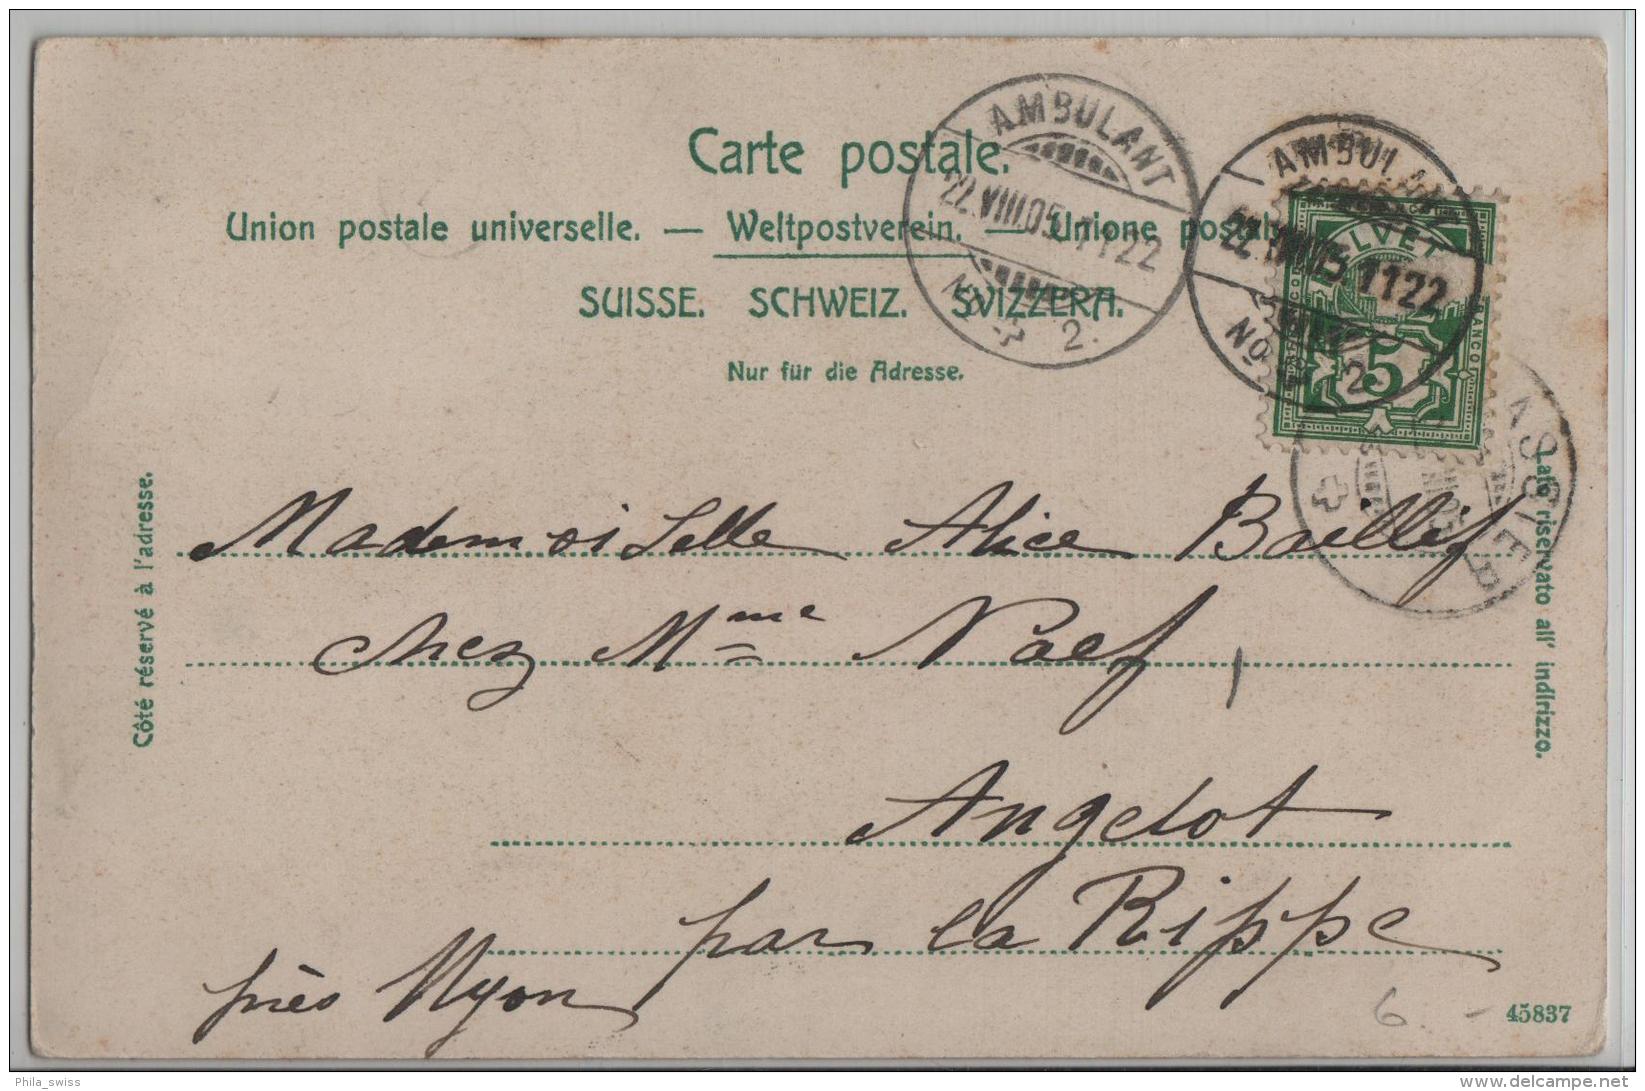 Carte postale.
Union postale universelle. — Weltpostverein. — Unione postale
SUISSE. SCHWEIZ. SVIZZERA.
Nur für die Adresse.
AMBULANT
22.VIII.05. 1122
No 2.
AMBULANT
22.VIII.05. 1122
No 2
HELVETIA
FRANCO
5
ASSIER
Côté réservé à l'adresse.
Lato riservato all' indirizzo.
Mademoiselle Alice Baillif
chez Mme Naef
Angelot
par la Rippe
près Nyon
6. -
45837
Phila_swiss
delcampe.net